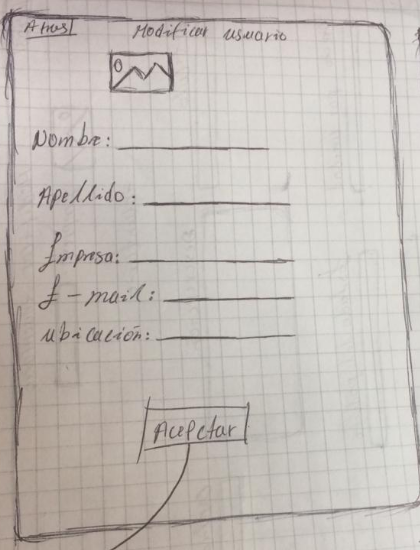 Atras
Modificar usuario
Nombre:
Apellido:
Empresa:
E-mail:
Ubicación:
Acepctar